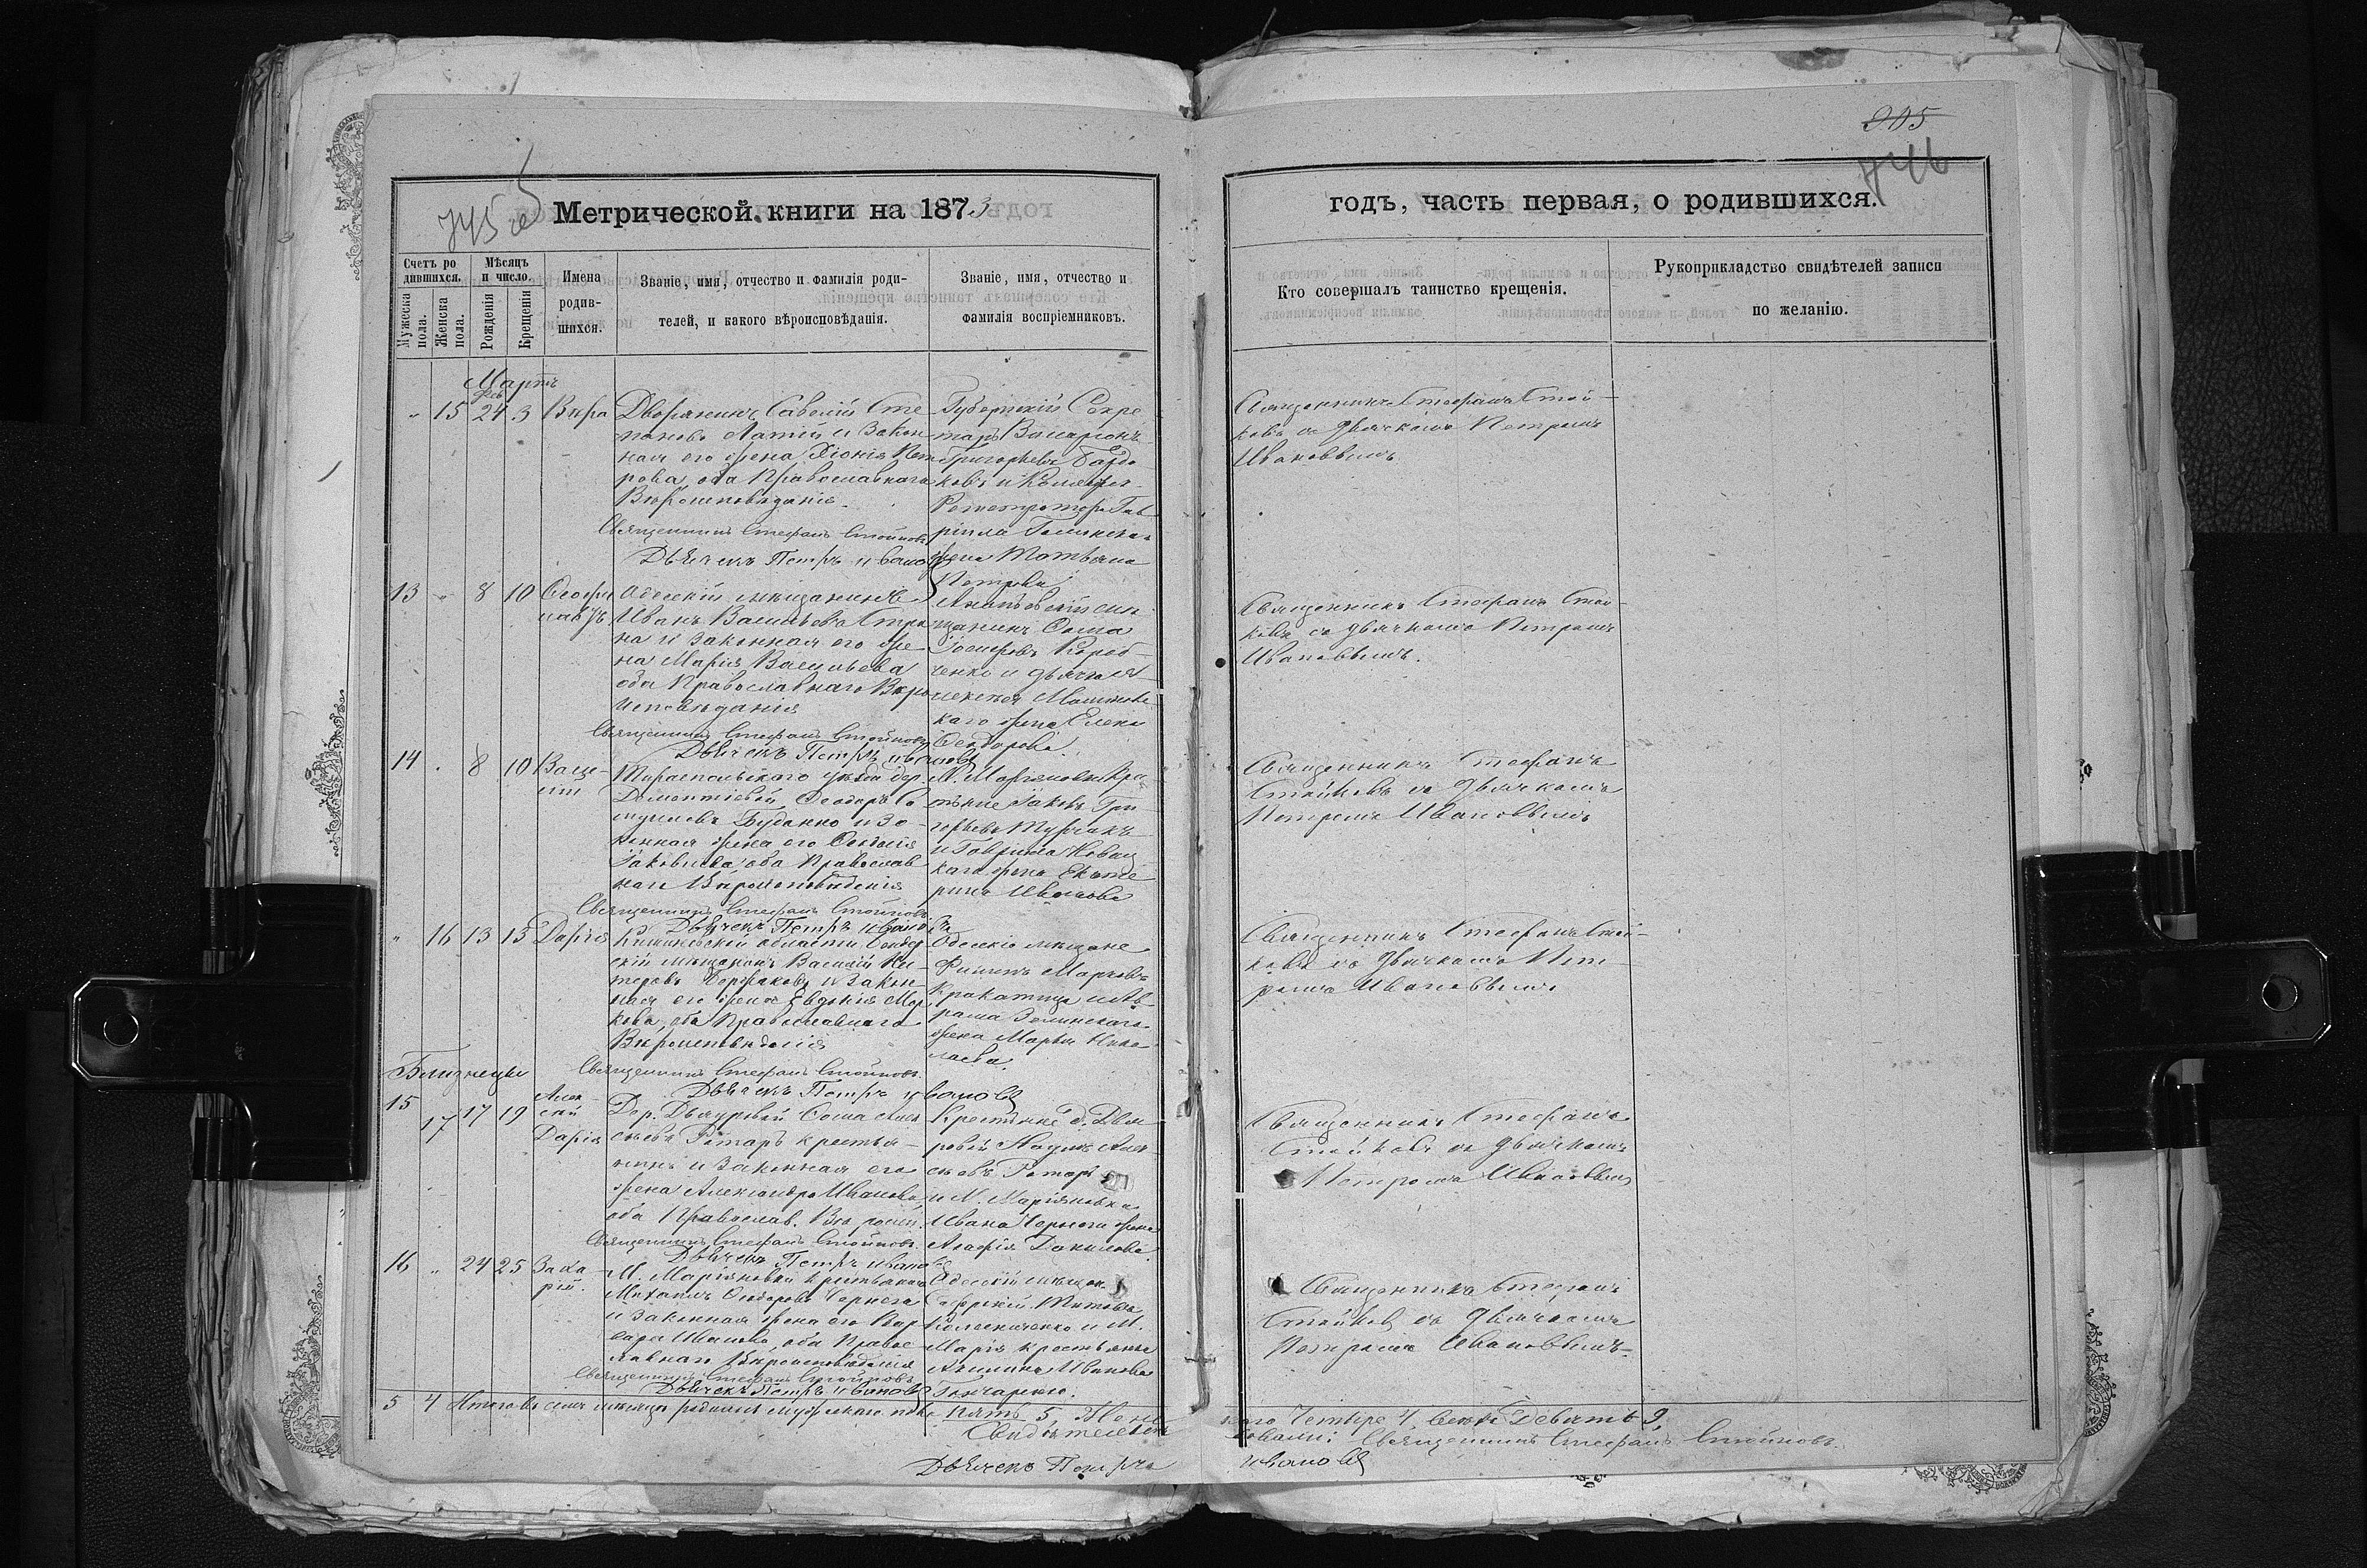 905
746
745 об
Метрической книги на 1873
годъ, часть первая, о родившихся.
Счетъ ро
дившихся.
Мужеска пола.
Женска пола.
Мѣсяцъ
и число.
Рожденія
Крещенія
Имена
родив-
шихся.
Званіе, имя, отчество и фамилія роди-
телей, и какого вѣроисповѣданія.
Званіе, имя, отчество и
фамилія воспріемниковъ.
Кто совершалъ таинство крещенія.
Рукоприкладство свидѣтелей записи
по желанію.
Мартъ
фев
" 15 24 3 Вѣра
Дворянинъ Савелій Сте
пановъ и Закон
ная его жена Хіонія Пет
рова, оба Православнаго
Вѣроисповѣданія.
Священникъ Стефанъ Стойковъ
Дьячекъ Петръ Ивановъ
Губернскій Секре
тарь
Григорьевъ
ковъ и
Регистратора Гав
ріила
жена Татьяна
Петрова
Священникъ Стефанъ Стой-
ковъ съ дьячкомъ Петромъ
Ивановымъ
13 " 8 10
Одесскій мѣщанинъ
Иванъ Васильевъ
на и Законная его же
на Марія Васильева
оба Православнаго Вѣро
исповѣданія
Священникъ Стефанъ Стойковъ
Дьячекъ Петръ Ивановъ
Ананьевскій мѣ
щанинъ Ѳома
Іосифовъ
ченко и дьячка
каго жена Елена
Ѳеодорова.
Священникъ Стефанъ Стой-
ковъ съ дьячкомъ Петромъ
Ивановымъ.
14 " 8 10 Васи-
лій
Тираспольскаго уѣзда дер.
Ѳеодоръ Са
муиловъ и За-
конная жена его Ѳеодосія
Іаковлева оба Православ
наго Вѣроисповѣданія
Священникъ Стефанъ Стойковъ
Дьячекъ Петръ Ивановъ
М. Маріяновки
Іаковъ Гри
горьевъ
и Гавріила
каго жена Екате
рина Иванова
Священникъ Стефанъ
Стойковъ съ дьячкомъ
Петромъ Ивановымъ
" 16 13 15 Дарія
Кишиневской области Бендер
скій мѣщанинъ Василій
и Закон-
ная его жена Евдокія Мар
кова, оба Православнаго
Вѣроисповѣданія
Священникъ Стефанъ Стойковъ.
Дьячекъ Петръ Ивановъ
Одесскіе мѣщане
Филипъ Марковъ
и Ав-
рама Зелинскаго
жена Марья Нико
лаева.
Священникъ Стефанъ Стой-
ковъ съ дьячкомъ Пет
ромъ Ивановымъ
Близнецы
15
17 17 19
Алек
сій
Дарія
Дер. Ѳома Алек
сѣевъ Ротарь крестья-
нинъ и Законная его
жена Александра Иванова
оба Православ. Вѣроисп.
Священникъ Стефанъ Стойковъ.
Дьячекъ Петръ Ивановъ
Крестьяне д.
Наумъ Алек
сѣевъ Ротарь
и М. Маріяновки
Ивана Чернеги жена
Агафія Данилова
Священникъ Стефанъ
Стойковъ съ дьячкомъ
Петромъ Ивановымъ
16 " 24 25 Заха
рій.
М. Маріяновки крестьянинъ
Михаилъ Ѳеодоровъ Чернега
и Законная жена его Вар
вара Иванова, оба Правос-
лавнаго Вѣроисповѣданія
Священникъ Стефанъ Стойковъ.
Дьячекъ Петръ Ивановъ
Одесскій мѣщан.
Титовъ
Колесниченко и М.
Марія крестьянка
Акилина Иванова
Гончаренко.
Священникъ Стефанъ
Стойковъ съ дьячкомъ
Петромъ Ивановымъ.
5 4 Итого въ семъ мѣсяцѣ родилось мужескаго пола пять 5, Жен
скаго Четыре 4, Всѣхъ Девять 9,
Свидѣтельст
вовали: Священникъ Стефанъ Стойковъ.
Дьячекъ Петръ
Ивановъ